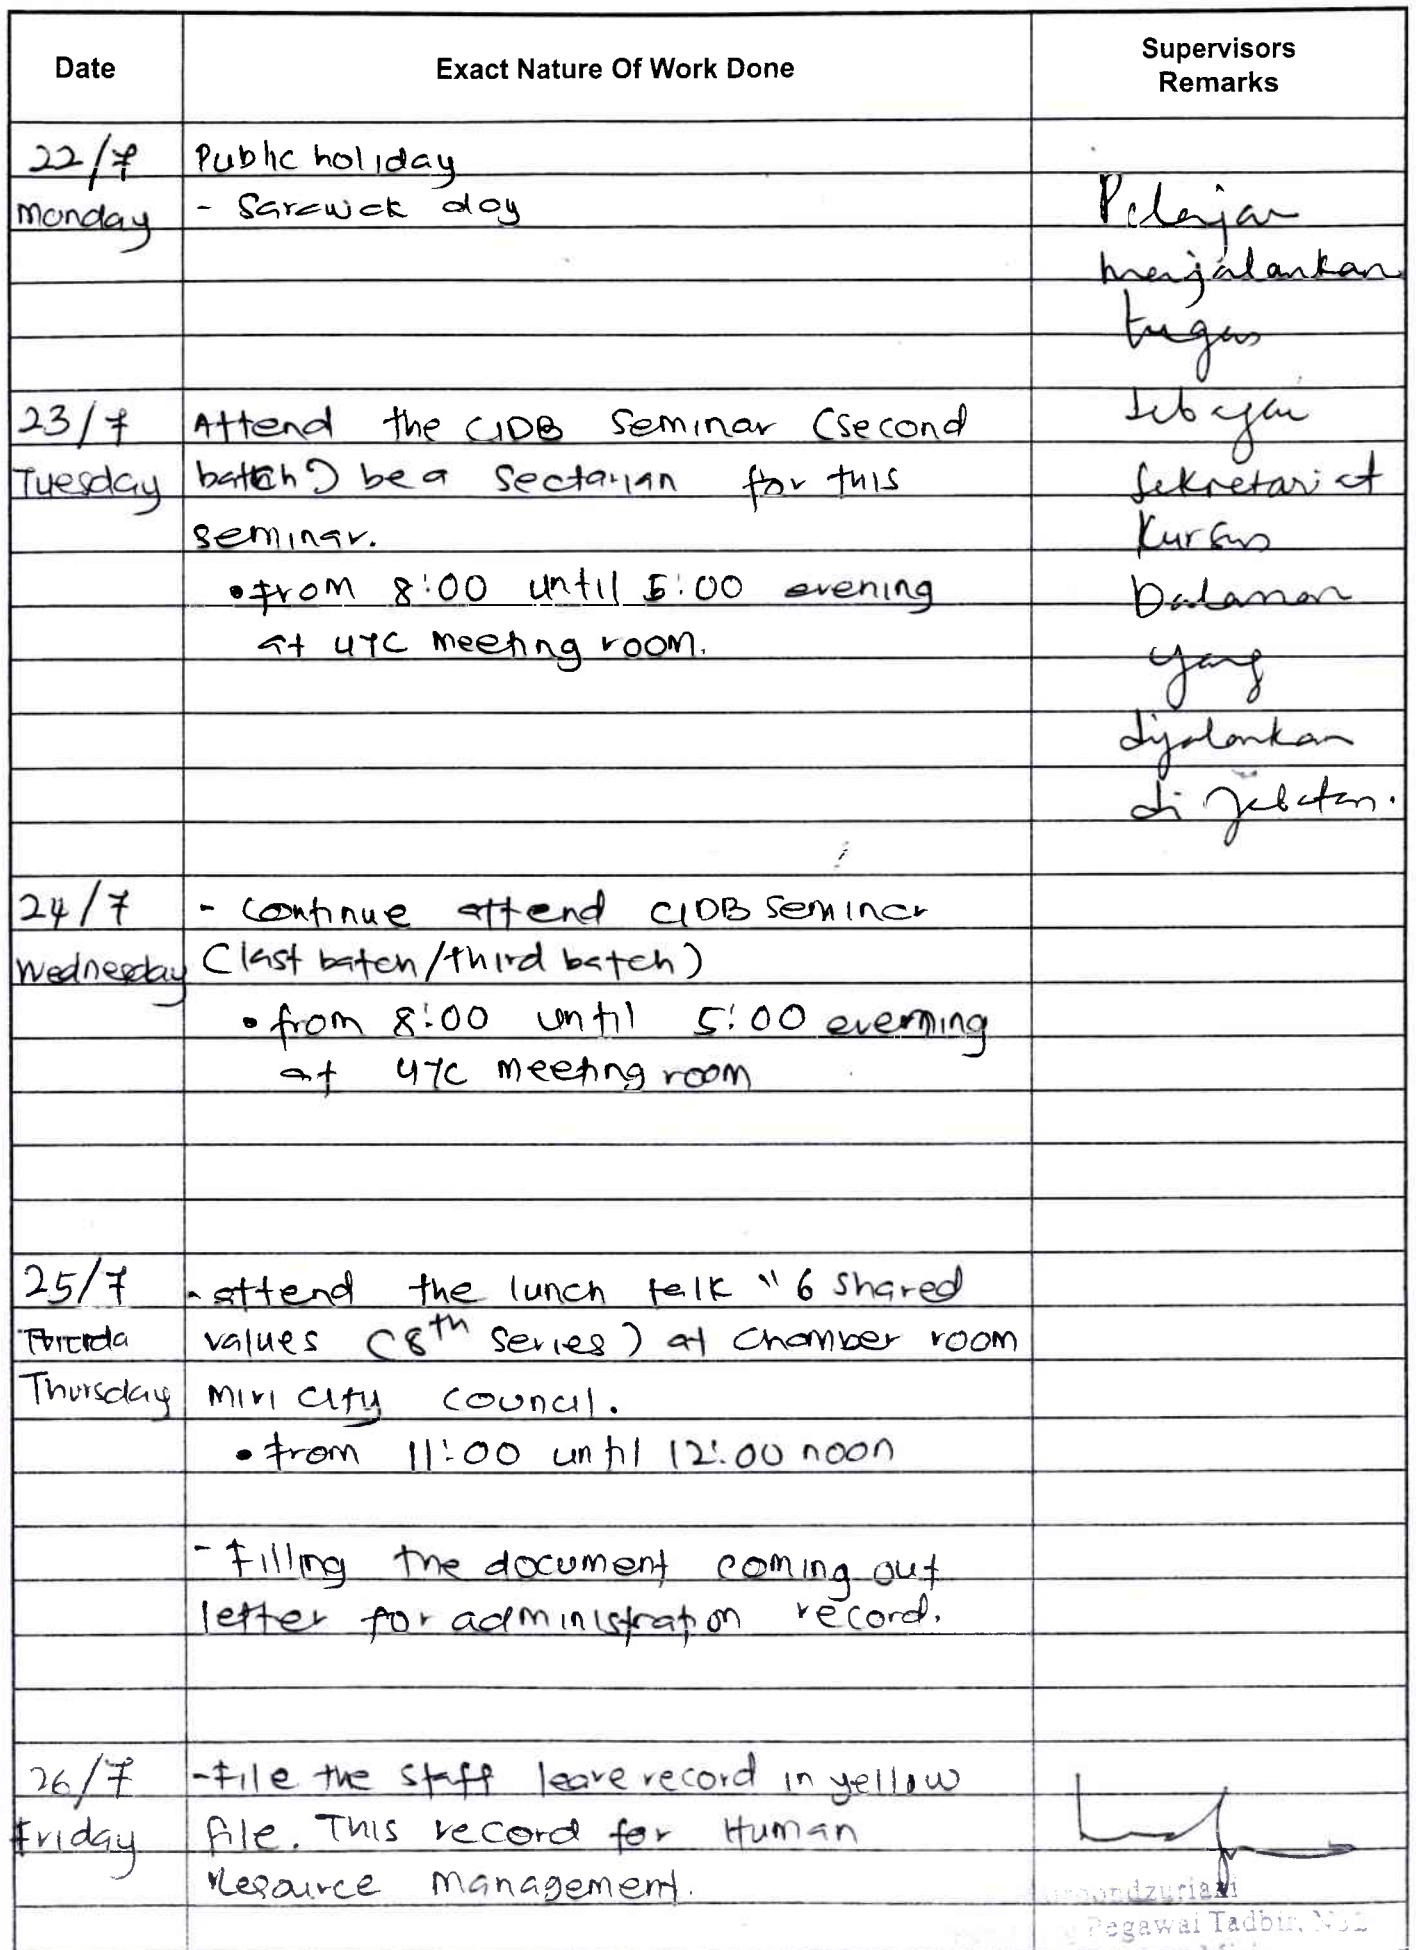 Date
Exact Nature Of Work Done
Supervisors
Remarks
22/7
Monday
Public holiday
- Sarawak day
Pelajar
menjalankan
tugas
sebagai
sekretariat
Kursus
Dalaman
yang
dijalankan
di Jabatan.
23/7
Tuesday
Attend the CIDB Seminar (second
batch) be a sectarian for this
seminar.
• from 8:00 until 5:00 evening
at UTC meeting room.
24/7
Wednesday
- Continue attend CIDB Seminar
(last batch/third batch)
• from 8:00 until 5:00 evening
at UTC meeting room
25/7
Thursday
- attend the lunch talk "6 shared
values (8th series) at chamber room
Miri City Council.
• from 11:00 until 12:00 noon
- Filling the document coming out
letter for administration record.
26/7
Friday
- File the staff leave record in yellow
file. This record for Human
Resource Management.
Pegawai Tadbir,